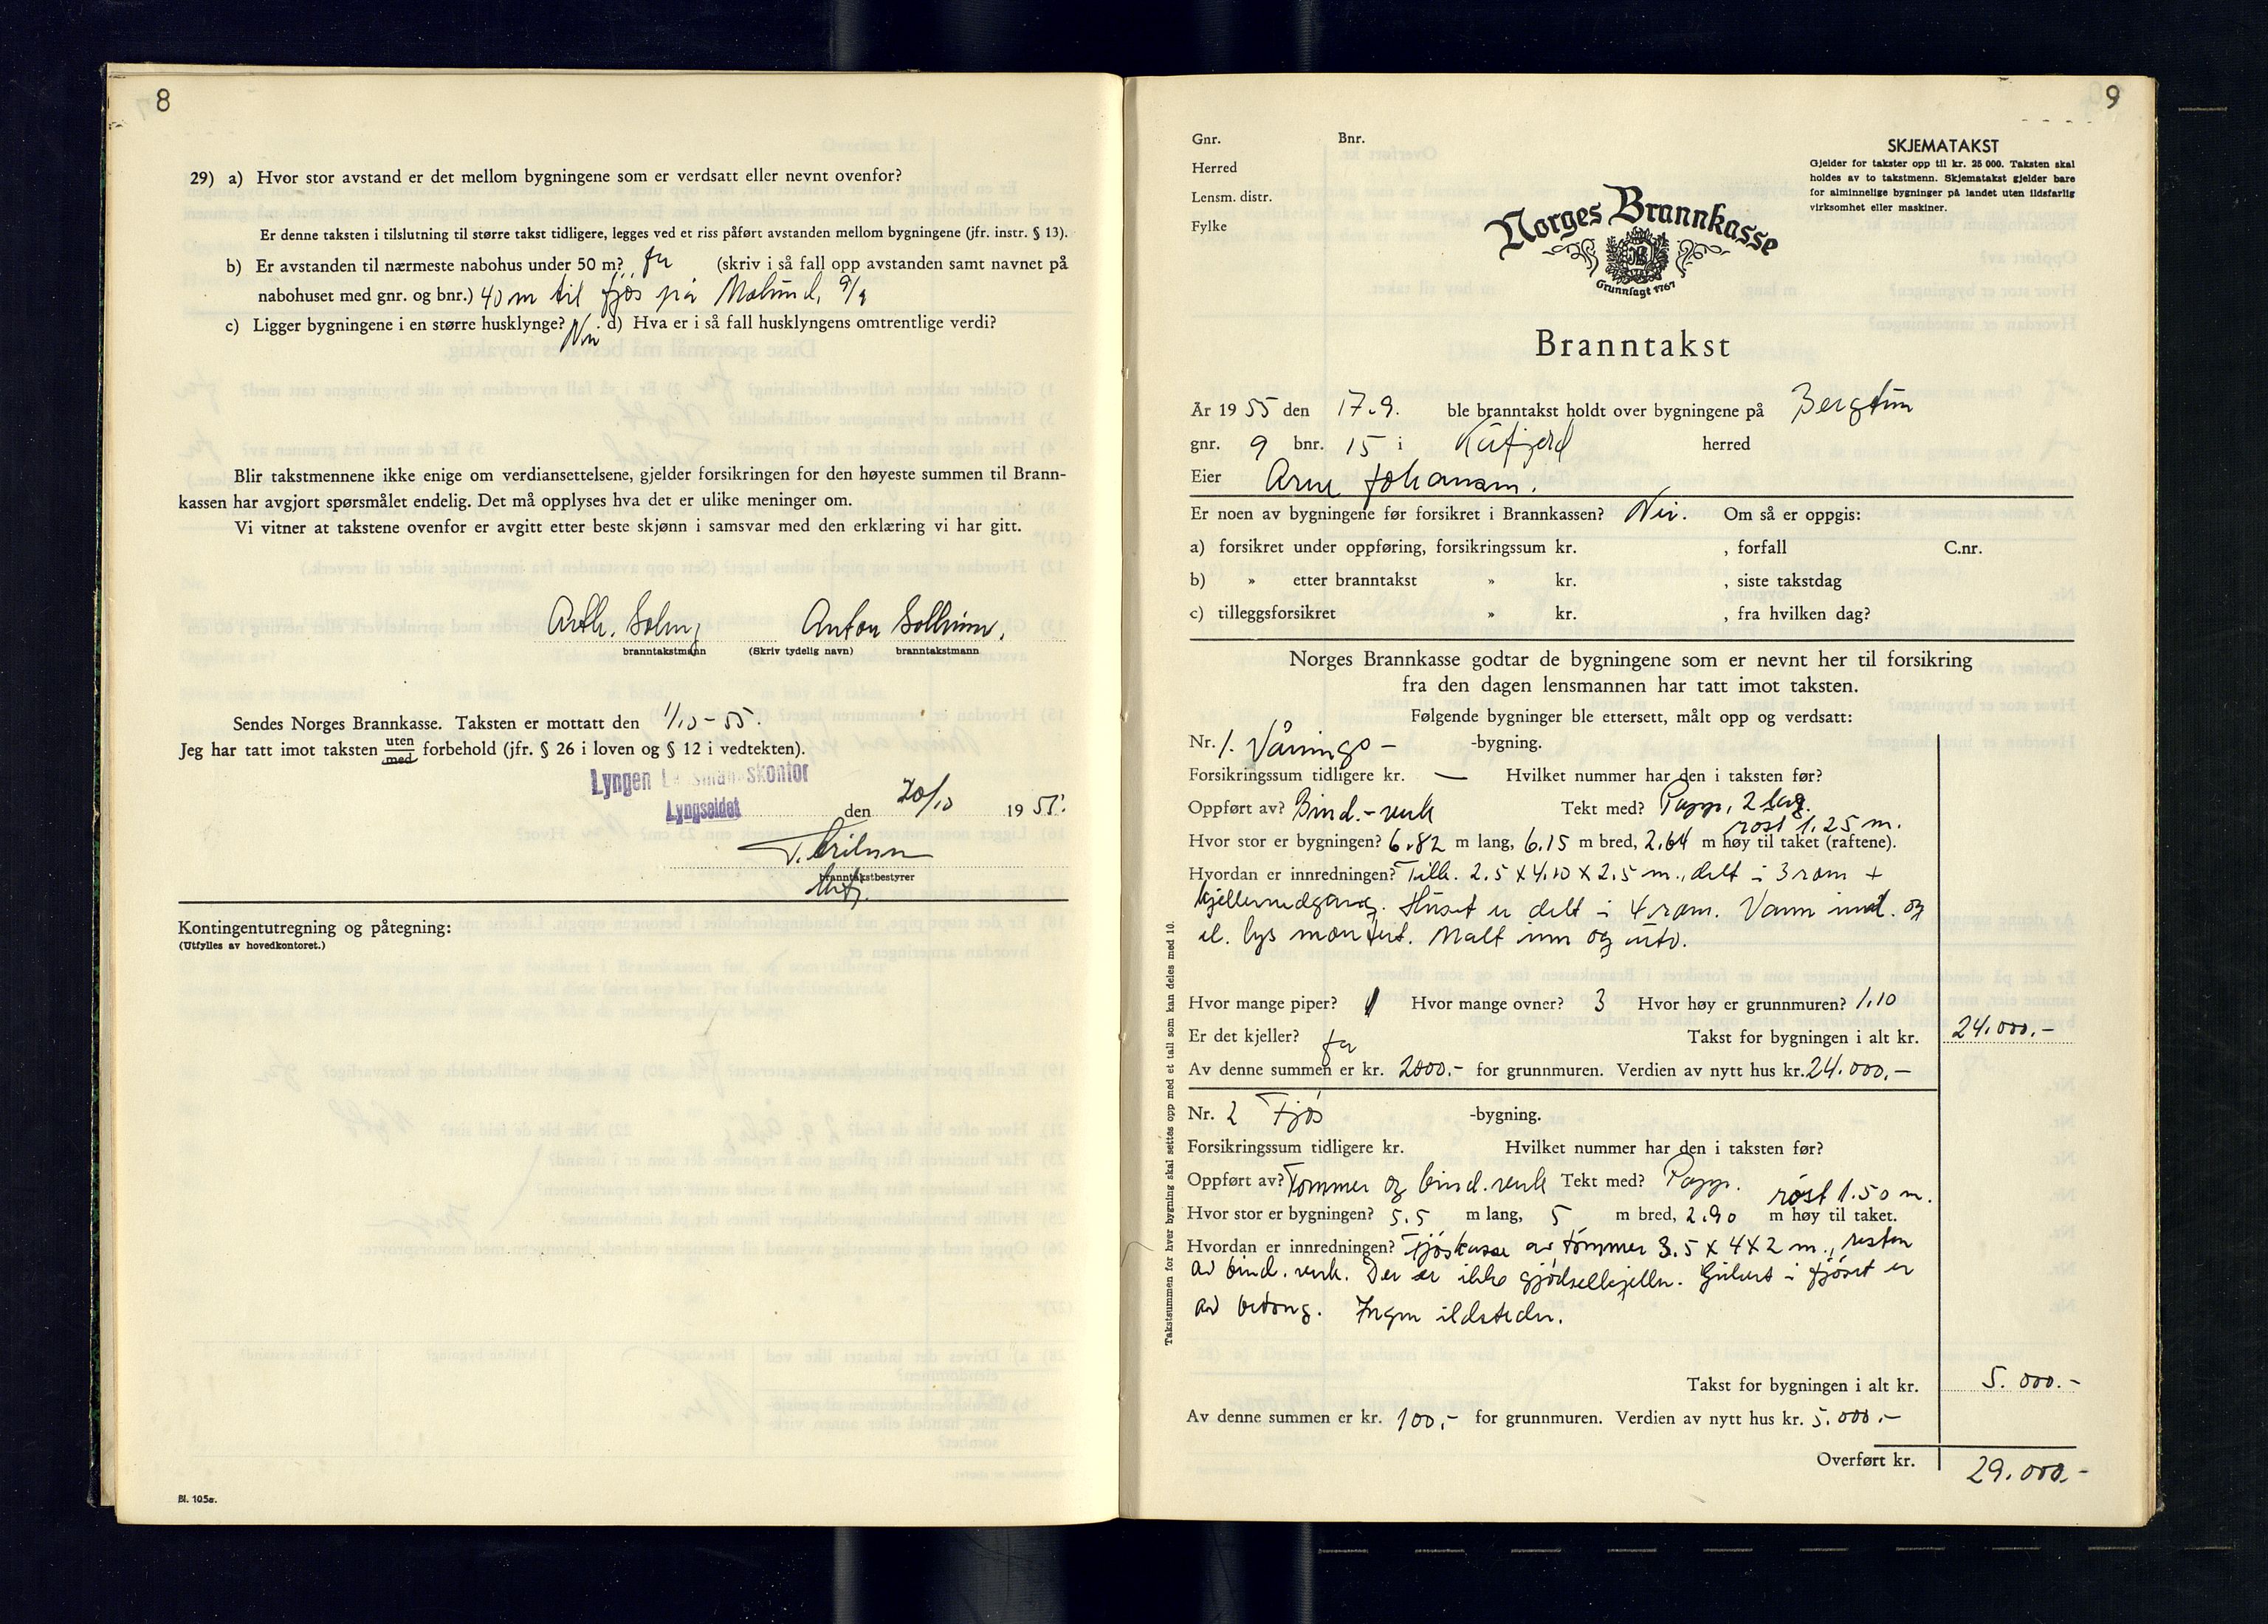 8
29) a) Hvor stor avstand er det mellom bygningene som er verdsatt eller nevnt ovenfor?
Er denne taksten i tilslutning til større takst tidligere, legges ved et riss påført avstanden mellom bygningene (jfr. instr. § 13).
b) Er avstanden til nærmeste nabohus under 50 m? Ja (skriv i så fall opp avstanden samt navnet på
nabohuset med gnr. og bnr.) 40 m til fjøs på 9/9
c) Ligger bygningene i en større husklynge? Nei d) Hva er i så fall husklyngens omtrentlige verdi?
Blir takstmennene ikke enige om verdiansettelsene, gjelder forsikringen for den høyeste summen til Brann-
kassen har avgjort spørsmålet endelig. Det må opplyses hva det er ulike meninger om.
Vi vitner at takstene ovenfor er avgitt etter beste skjønn i samsvar med den erklæring vi har gitt.
Arth. Anton
branntakstmann (Skriv tydelig navn) branntakstmann
Sendes Norges Brannkasse. Taksten er mottatt den 1/10-55.
Jeg har tatt imot taksten uten/med forbehold (jfr. § 26 i loven og § 12 i vedtekten).
Lyngen Lensmannskontor
Lyngseidet den 20/10 1955.
branntakstbestyrer
Kontingentutregning og påtegning:
(Utfylles av hovedkontoret.)
Bl. 105a.
9
Gnr. Bnr.
Herred
Lensm. distr.
Fylke
SKJEMATAKST
Gjelder for takster opp til kr. 25 000. Taksten skal
holdes av to takstmenn. Skjematakst gjelder bare
for alminnelige bygninger på landet uten ildsfarlig
virksomhet eller maskiner.
Norges Brannkasse
Grunnlagt 1767
Branntakst
År 1955 den 17.9. ble branntakst holdt over bygningene på Bergtun
gnr. 9 bnr. 15 i Kåfjord herred
Eier Arne Johansen.
Er noen av bygningene før forsikret i Brannkassen? Nei. Om så er oppgis:
a) forsikret under oppføring, forsikringssum kr. , forfall C.nr.
b) » etter branntakst » kr. , siste takstdag
c) tilleggsforsikret » kr. , fra hvilken dag?
Norges Brannkasse godtar de bygningene som er nevnt her til forsikring
fra den dagen lensmannen har tatt imot taksten.
Følgende bygninger ble ettersett, målt opp og verdsatt:
Nr. 1. Vånings- -bygning.
Forsikringssum tidligere kr. — Hvilket nummer har den i taksten før?
Oppført av? Bind.-verk Tekt med? Papp, 2 lag.
røst 1.25 m.
Hvor stor er bygningen? 6.82 m lang, 6.15 m bred, 2.64 m høy til taket (raftene).
Hvordan er innredningen? Tilb. 2.5 x 4.10 x 2.5 m., delt i 3 rom +
kjellernedgang. Huset er delt i 4 rom. Vann innl. og
el. lys montert. Malt inn og utv.
Hvor mange piper? 1 Hvor mange ovner? 3 Hvor høy er grunnmuren? 1.10
Er det kjeller? Ja Takst for bygningen i alt kr. 24.000.-
Av denne summen er kr. 2000.- for grunnmuren. Verdien av nytt hus kr. 24.000.-
Nr. 2 Fjøs -bygning.
Forsikringssum tidligere kr. Hvilket nummer har den i taksten før?
Oppført av? Tømmer og bind.verk Tekt med? Papp.
røst 1.50 m.
Hvor stor er bygningen? 5.5 m lang, 5 m bred, 2.90 m høy til taket.
Hvordan er innredningen? Fjøskasse av tømmer 3.5 x 4 x 2 m., resten
av bind.verk. Der er ikke gjødselkjeller. Gulvet i fjøset er
av betong. Ingen ildsteder.
Takst for bygningen i alt kr. 5.000.-
Av denne summen er kr. 100.- for grunnmuren. Verdien av nytt hus kr. 5.000.-
Overført kr. 29.000.-
Takstsummen for hver bygning skal settes opp med et tall som kan deles med 10.